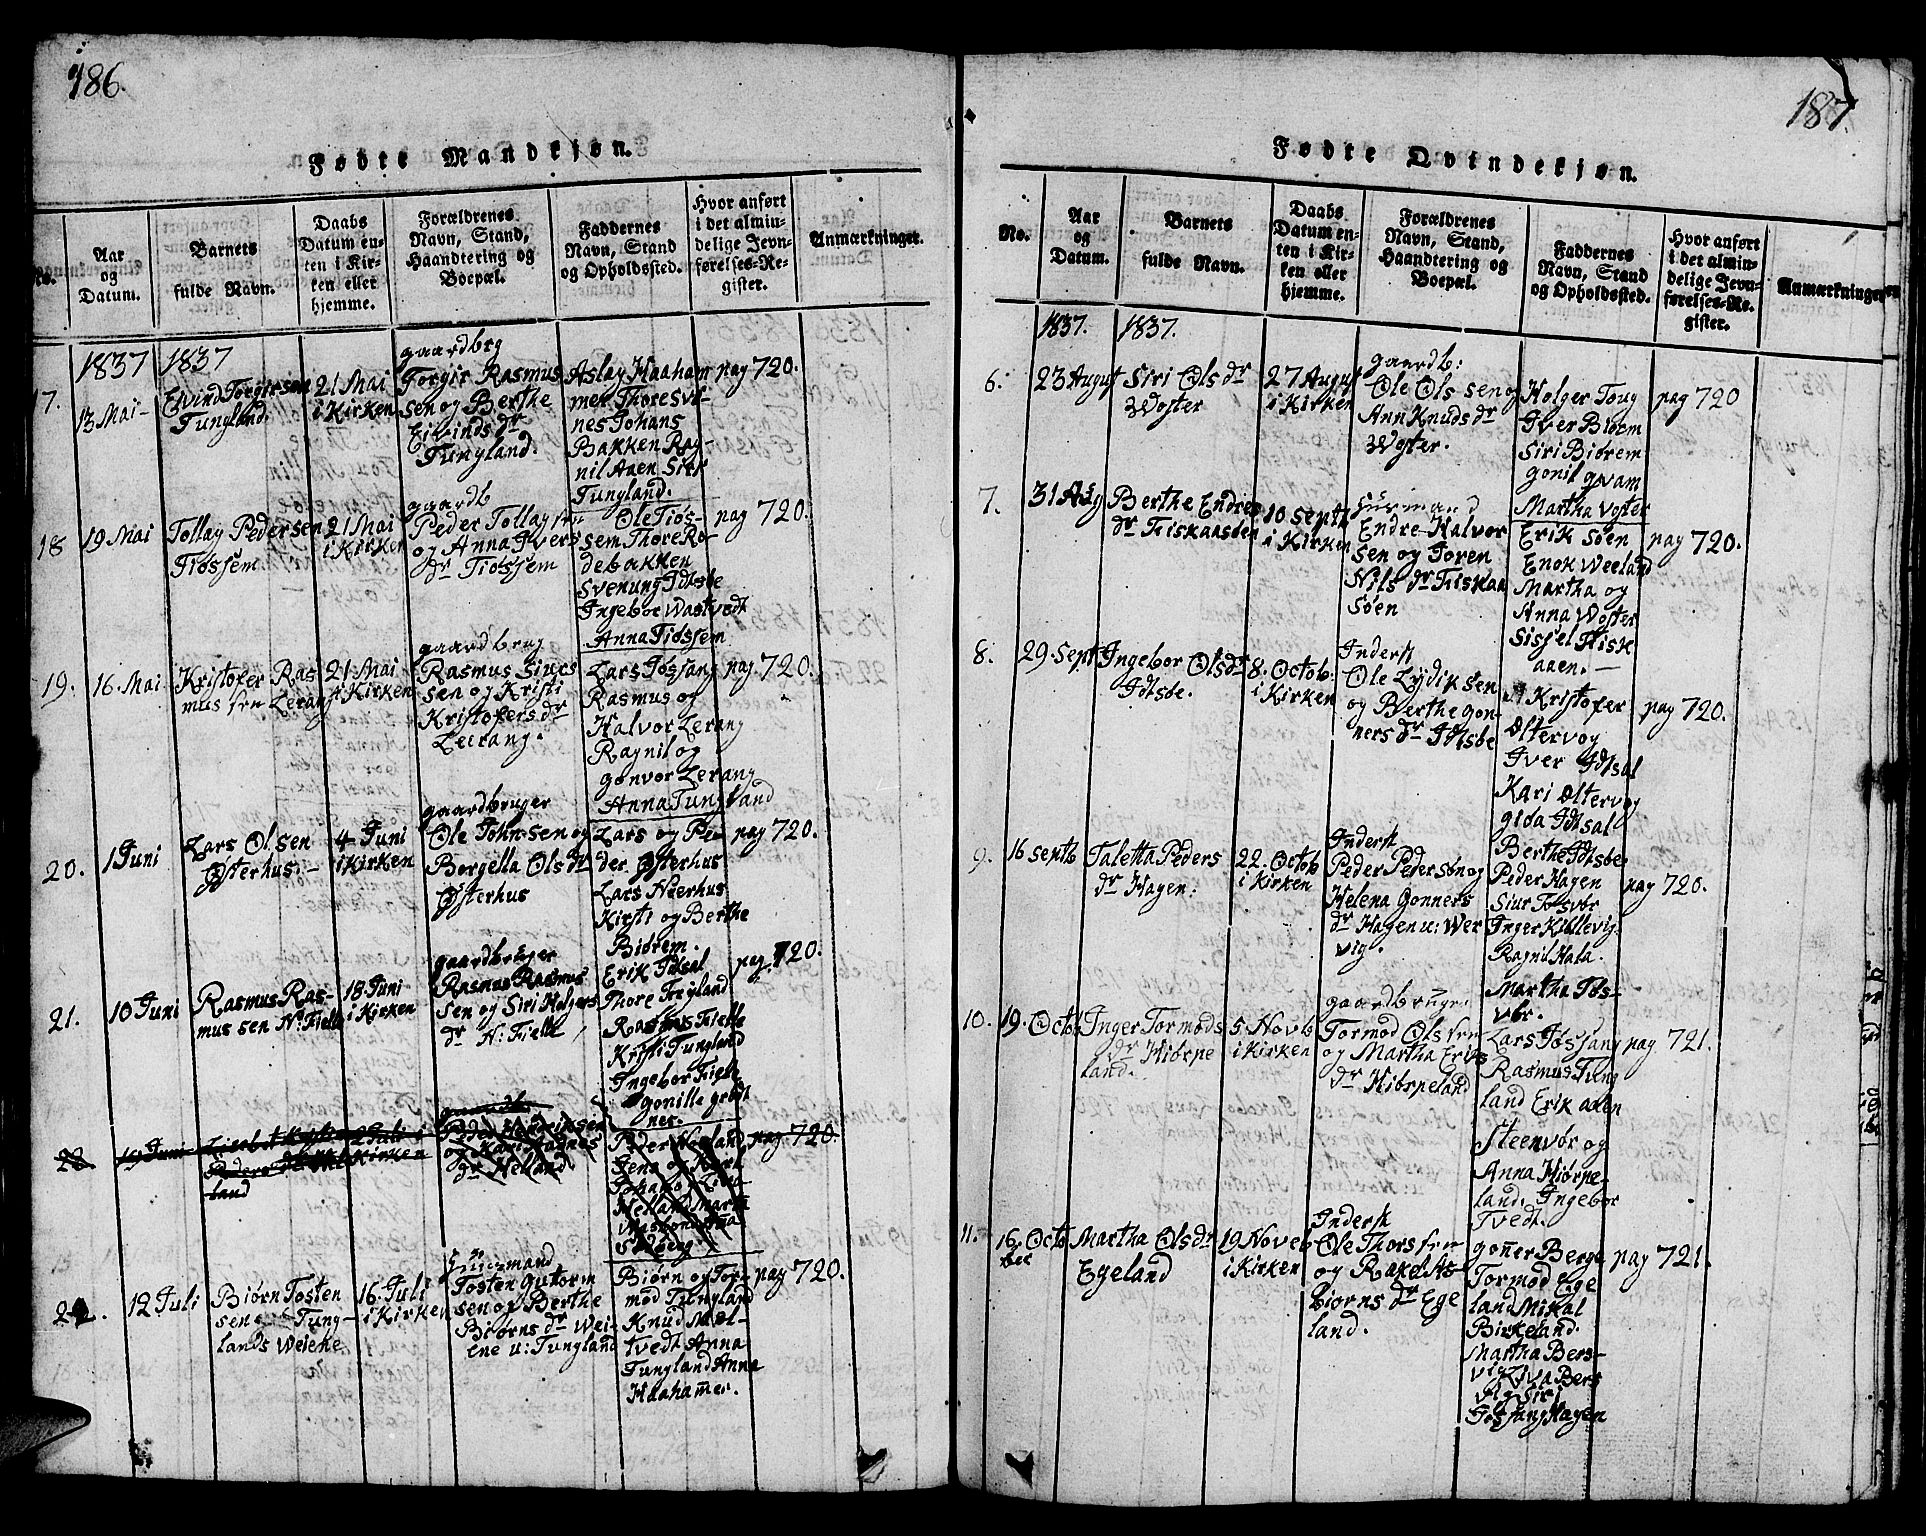 186.
Fødte Mandkjøn.
No.
Aar
og
Datum.
Barnets
fulde Navn.
Daabs
Datum en-
ten i Kir-
ken eller
hjemme.
Forældrenes
Navn, Stand,
Haandtering og
Boepæl.
Faddernes
Navn, Stand
og Opholdssted.
Hvor anført
i det almin-
delige Jevn-
førelses-Re-
gister.
Anmærkninger.
1837 1837
17.
13 Mai-
Eivind Torgersen
Tungland
21 Mai
i Kirken
gaardbrg
Torgir Rasmus
sen og Berthe
Eivinds dr
Tungland.
Aslag Haaham
mer Thore Svi-
nes Johans
Bakken Rag-
nil Aaen Siri
Tungland.
pag 720.
18
19 Mai
Tollag Pedersen
Tiøssem
21 Mai
i Kirken
gaardb
Peder Tollagsen
og Anna Ivers
dr Tiøssem
Ole Tiøs-
sem Thore Ro-
debakken
Svenung Idtsbe
Ingebor Wastvedt
Anna Tiøssem
pag 720.
19.
16. Mai
Kristofer Ras
mussen Lerang
21 Mai
i Kirken
gaardbrug
Rasmus Siues
sen og Kristi
Kristofers dr
Leirang.
Lars Jøssang
Rasmus og
Halvor Lerang
Ragnil og
gonvor Lerang
Anna Tungland
pag 720.
20.
1 Juni
Lars Olsen
Østerhus.-
4 Juni
i Kirken
gaardbruger
Ole Johnsen og
Borgella Ols dr
Østerhus
Lars og Pe-
der Østerhus
Lars Neerhus
Kirsti og Berthe
Biørem.
pag 720.
21.
10 Juni
Rasmus Ras-
mussen N: Fielle
18 Juni
i Kirken
gaardbruger
Rasmus Rasmus
sen og Siri Holgers
dr N: Fielle
Erik Idsal
Thore Frylland
Rasmus Fielle
Kristi Tungland
Ingebor Fielle
gonille grødt
nes.
pag. 720.
22
19 Juni
land
2 Juli i
Kirken
Peder Hendriksen
og Kari Magnes
dr Helland
Peder Helland
pag 720.
22.
12 Juli
Biørn Tosten
sen Tung-
lands Weiene
16. Juli
i Kirken
Huusmand
Tosten Gutorm
sen og Berthe
Biørns dr Wei-
ene u: Tungland
Biørn og Tor-
mod Tungland
Knud Mæl-
tvedt Anna
Tungland Anna
Haahamer.
pag 720.
187.
Fødte Qvindekjøn.
No.
Aar
og
Datum.
Barnets
fulde Navn.
Daabs
Datum en-
ten i Kir-
ken eller
hjemme.
Forældrenes
Navn, Stand,
Haandtering og
Boepæl.
Faddernes
Navn, Stand
og Opholdssted.
Hvor anført
i det almin-
delige Jevn-
førelses-Re-
gister.
Anmærkninger
1837. 1837.
6.
23 August
Siri Ols dr
Woster
27 August
i Kirken
gaardb:
Ole Olssen og
Ann Knuds dr
Woster.
Holger Toug
Iver Biørem
Siri Biørem
gonil gvam
Martha Voster
pag 720
7.
31 Aug
Berthe Endres
dr Fiskaasøen
10 Septb
i Kirken
Huusmand
Endre Halvor
sen og Joren
Nils dr Fiskaa
søen
Erik Søen
Enok Weeland
Martha og
Anna Woster
Sissel Fisk
aaen.-
pag 720.
8.
29. Sept
Ingebor Ols dr
Idtsbe.
8. Octob.
i Kirken
Inderst
Ole Lydiksen
og Berthe gon-
ners dr Idtsbe
Kristofer
Østervog
Iver Idtsal
Kari Østervog
giøa Idtsal
Berthe Idtsbe
pag 720.
9.
16 septb
Taletta Peders
dr Hagen:
22. Octob
i Kirken
Inderst
Peder Pedersøn og
Helena Gonners
dr Hagen u: Wer
vig.
Peder Hagen
Siur Tøsvør
Inger Killevig
Ragnil Hala.
Martha Tøs-
vør.
pag 720.
10.
19. Octob
Inger Tormods
dr Hiørpe
land.
5 Novb
i Kirken
gaardbruger
Tormod Olssen
og Martha Eriks
dr Hiørpeland
Lars Jøssang
Rasmus Tung
land Erik aaen
Steenvør og
Anna Hiørpe-
land. Ingebor
Tvedt.
pag 721.
11.
16. Octo
ber
Martha Ols dr
Egeland
19 Noveb
i Kirken
Inderst
Ole Thorssen
og Rakel As-
biørns dr Ege
land.
gonner Berge
Tormod Ege
land Mikal
Birkeland.
Martha Bers-
vig Eva Bers
vig Siri
Jøssang Hagen
pag 721.